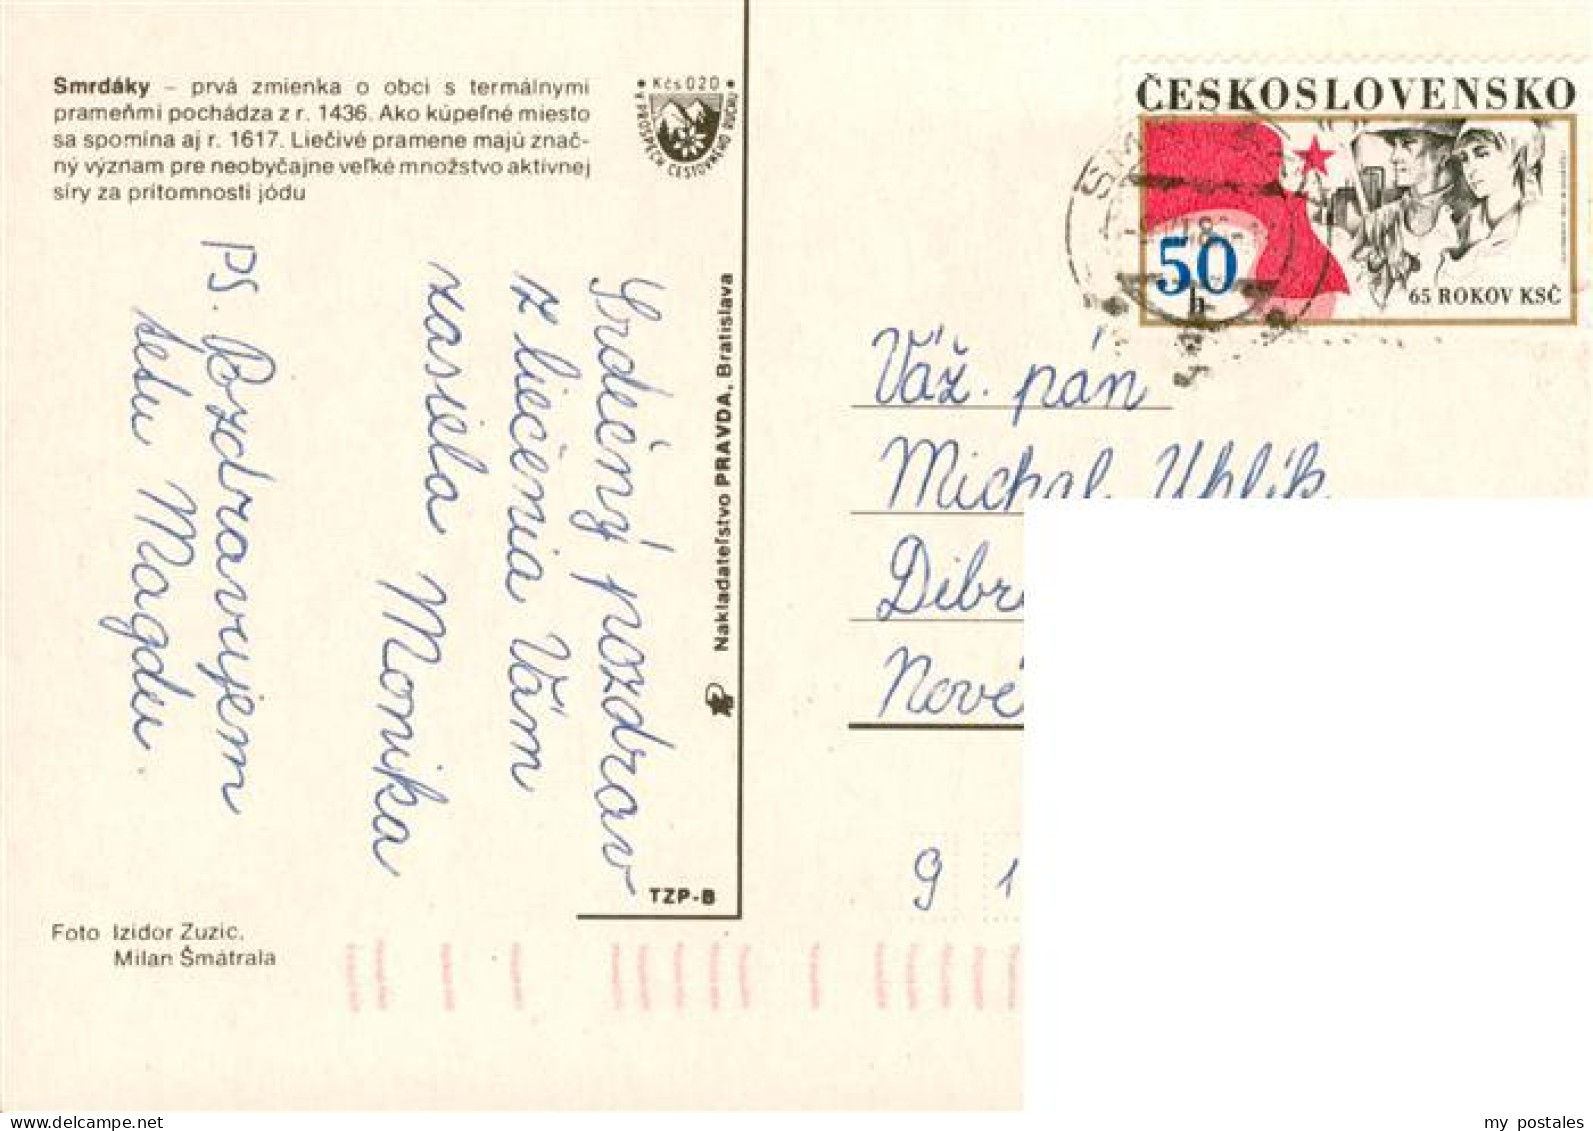 Smrdáky – prvá zmienka o obci s termálnymi
prameňmi pochádza z r. 1436. Ako kúpeľné miesto
sa spomína aj r. 1617. Liečivé pramene majú znač-
ný význam pre neobyčajne veľké množstvo aktívnej
síry za prítomnosti jódu
• Kčs 020 •
V PROSPECH CESTOVNÉHO RUCHU
ČESKOSLOVENSKO
50
h
65 ROKOV KSČ
Srdečný pozdrav
z liečenia Vám
zasiela Monika
PS. Pozdravujem
tetu Magdu.
Nakladateľstvo PRAVDA, Bratislava
TZP-B
Váž. pán
Michal Uhlík
Dibr
Nové
9 1
Foto Izidor Zuzic,
Milan Šmátrala
my_postales